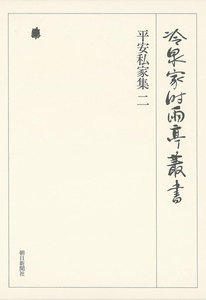 冷泉家時雨亭叢書
平安私家集 二
朝日新聞社